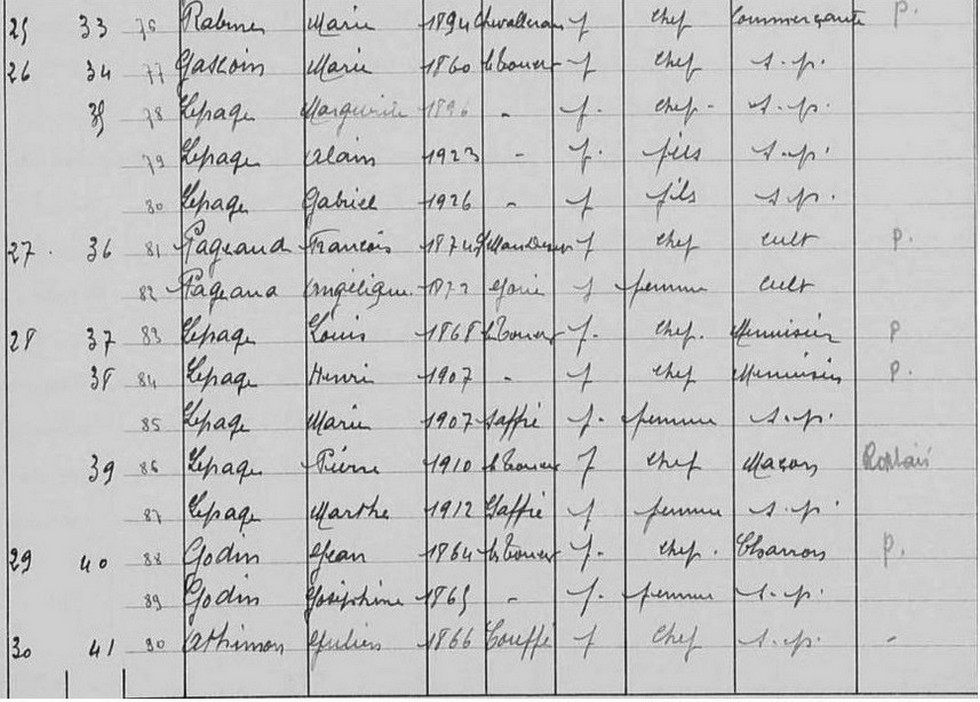 25 33 76 Marie 1894 f chef Commerçante P.
26 34 77 Gascoin Marie 1860 f chef s.p.
35 78 Lepage Marguerite 1896 - f. chef - s.p.
79 Lepage Alain 1923 - f. fils s.p.
80 Lepage Gabriel 1926 - f fils s.p.
27 . 36 81 Pageaud François 1874 f chef cult P.
82 Pageaud Angélique 1872 f femme cult
28 37 83 Lepage Louis 1868 f. chef. Menuisier P
38 84 Lepage Henri 1907 - f chef Menuisier P.
85 Lepage Marie 1907 Saffré f. femme s.p.
39 86 Lepage Pierre 1910 f chef Maçon
87 Lepage Marthe 1912 Saffré f femme s.p.
29 40 88 Godin Jean 1864 f. chef. Charron P.
89 Godin Joséphine 1865 - f. femme s.p.
30 41 90 Athimon Julien 1866 Touffé f chef s.p. -